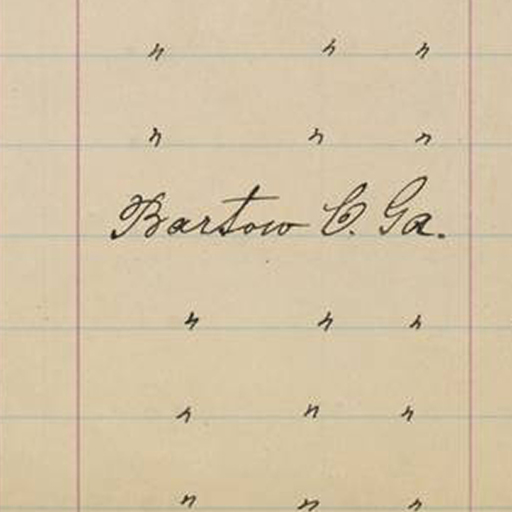 " " "
" " "
Bartow C. Ga.
" " "
" " "
" " "